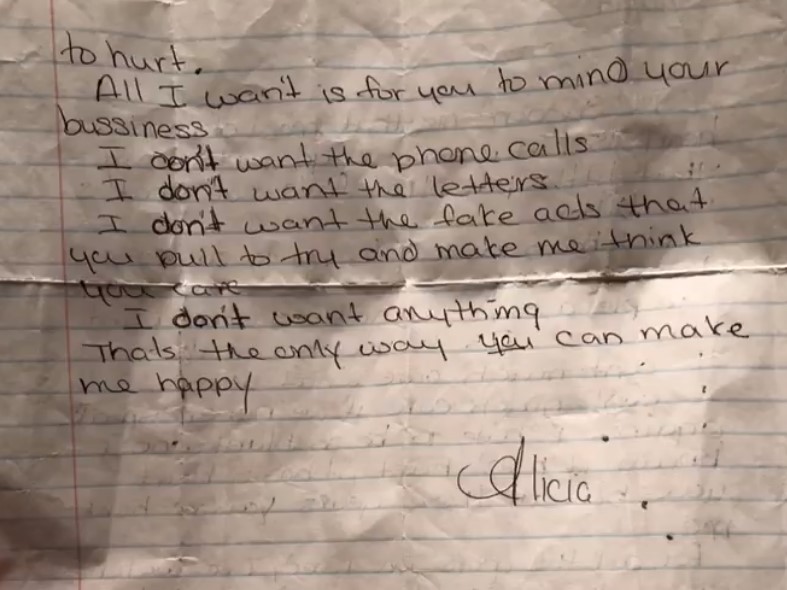 to hurt.
All I wan't is for you to mind your
bussiness
I don't want the phone calls
I don't want the letters.
I don't want the fake acts that
you pull to try and make me think
you care
I don't want anything
Thats the only way you can make
me happy
Alicia